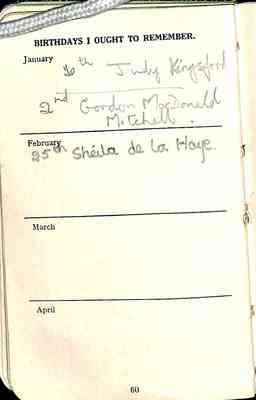 BIRTHDAYS I OUGHT TO REMEMBER.
January
16th Judy Kingsford
2nd Gordon MacDonald
Mitchell.
February
25th Sheila de La Haye.
March
April
60